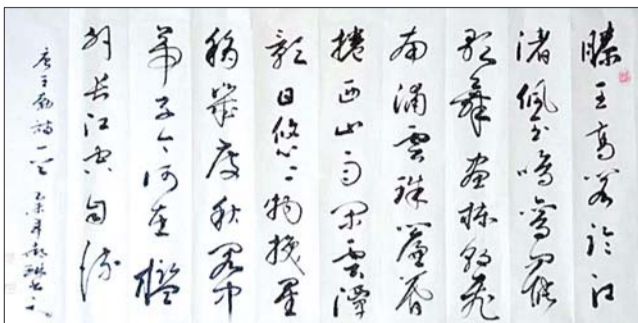 滕王高閣臨江
渚佩玉鳴鸞罷
歌舞畫棟朝飛
南浦雲珠簾暮
捲西山雨閑雲潭
影日悠〻物換星
移幾度秋閣中
帝子今何在檻
外長江空自流
唐王勃詩一首 乙未年